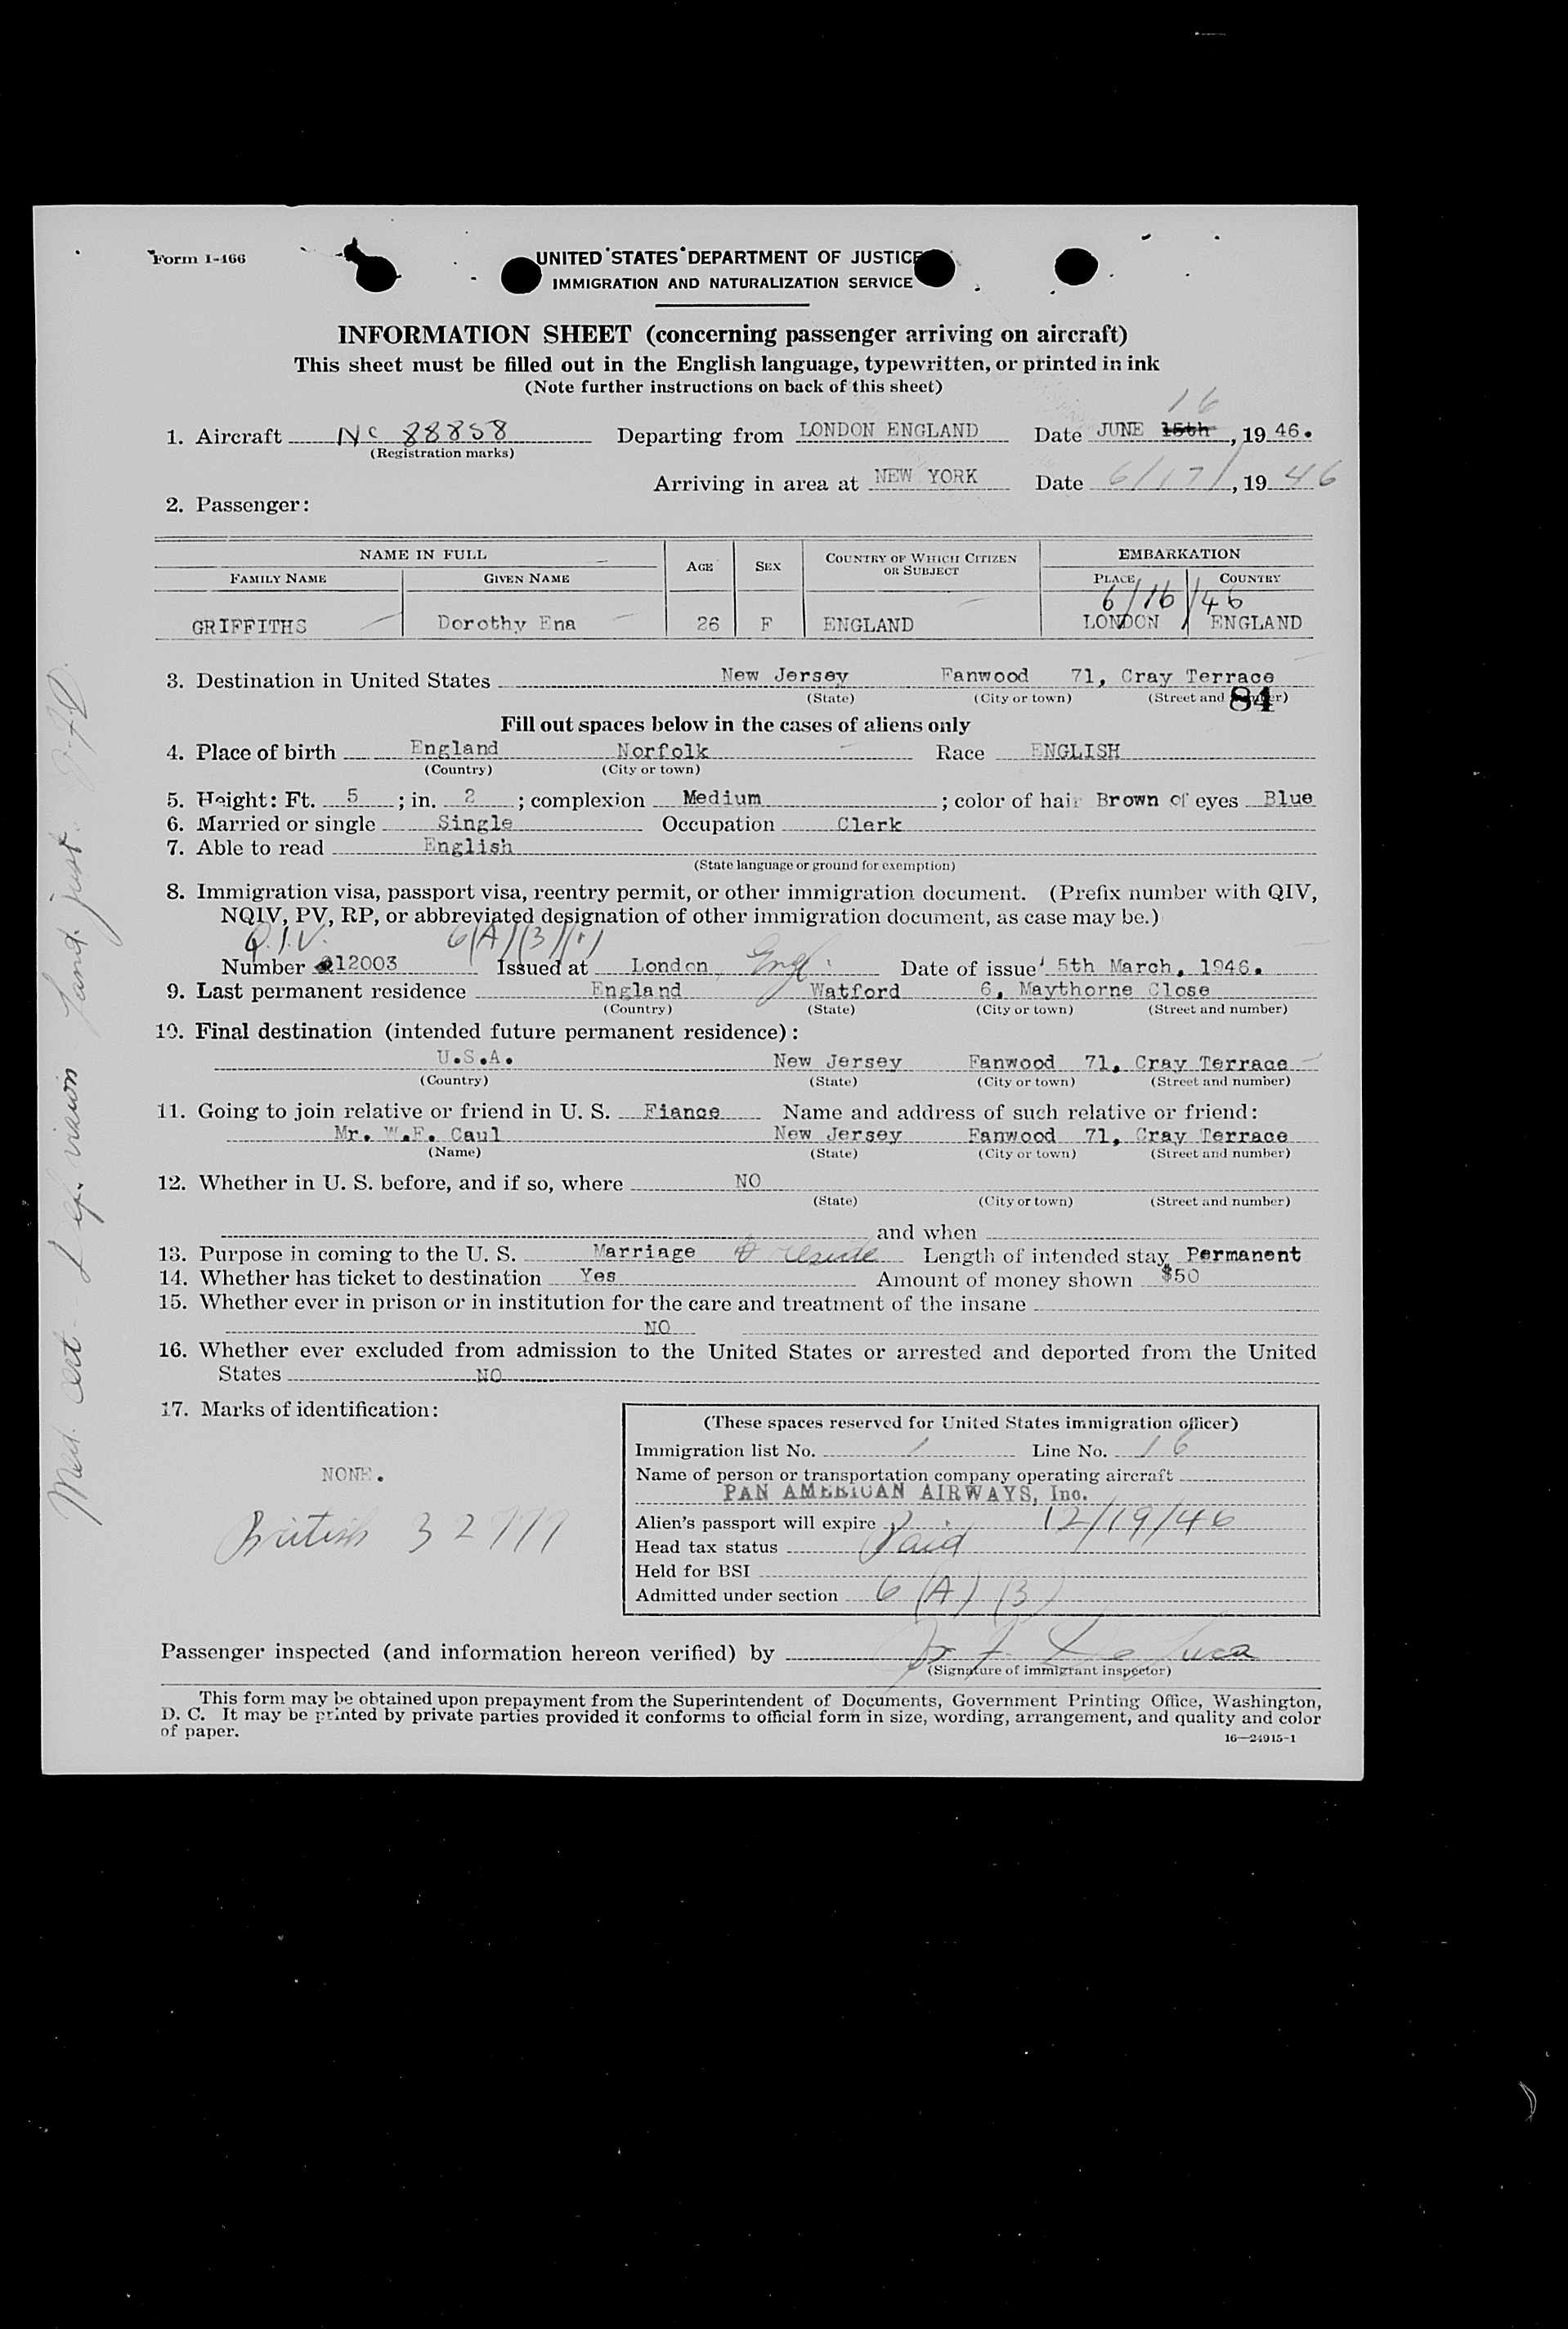 Form I-466
UNITED STATES DEPARTMENT OF JUSTICE
IMMIGRATION AND NATURALIZATION SERVICE
INFORMATION SHEET (concerning passenger arriving on aircraft)
This sheet must be filled out in the English language, typewritten, or printed in ink
(Note further instructions on back of this sheet)
16
1. Aircraft NC 88858 Departing from LONDON ENGLAND Date JUNE 15th, 1946.
(Registration marks)
Arriving in area at NEW YORK Date 6/17/, 1946
2. Passenger:
NAME IN FULL AGE SEX COUNTRY OF WHICH CITIZEN OR SUBJECT EMBARKATION
FAMILY NAME GIVEN NAME PLACE COUNTRY
6/16/46
GRIFFITHS Dorothy Ena 26 F ENGLAND LONDON ENGLAND
3. Destination in United States New Jersey Fanwood 71, Cray Terrace
(State) (City or town) (Street and number)
84
Fill out spaces below in the cases of aliens only
4. Place of birth England Norfolk Race ENGLISH
(Country) (City or town)
5. Height: Ft. 5; in. 2; complexion Medium; color of hair Brown of eyes Blue
6. Married or single Single Occupation Clerk
7. Able to read English
(State language or ground for exemption)
8. Immigration visa, passport visa, reentry permit, or other immigration document. (Prefix number with QIV,
NQIV, PV, RP, or abbreviated designation of other immigration document, as case may be.)
Q.I.V. 6(A)(3)
Number 12003 Issued at London, Engl. Date of issue 5th March, 1946.
9. Last permanent residence England Watford 6, Maythorne Close
(Country) (State) (City or town) (Street and number)
10. Final destination (intended future permanent residence):
U.S.A. New Jersey Fanwood 71, Cray Terrace
(Country) (State) (City or town) (Street and number)
11. Going to join relative or friend in U. S. Fiance Name and address of such relative or friend:
Mr. W.F. Caul New Jersey Fanwood 71, Cray Terrace
(Name) (State) (City or town) (Street and number)
12. Whether in U. S. before, and if so, where NO
(State) (City or town) (Street and number)
and when
13. Purpose in coming to the U. S. Marriage & reside Length of intended stay Permanent
14. Whether has ticket to destination Yes Amount of money shown $50
15. Whether ever in prison or in institution for the care and treatment of the insane
NO
16. Whether ever excluded from admission to the United States or arrested and deported from the United
States NO
17. Marks of identification:
NONE.
British 32777
(These spaces reserved for United States immigration officer)
Immigration list No. 1 Line No. 16
Name of person or transportation company operating aircraft
PAN AMERICAN AIRWAYS, Inc.
Alien's passport will expire 12/19/46
Head tax status Paid
Held for BSI
Admitted under section 6 (A) (3)
Passenger inspected (and information hereon verified) by
(Signature of immigrant inspector)
This form may be obtained upon prepayment from the Superintendent of Documents, Government Printing Office, Washington,
D. C. It may be printed by private parties provided it conforms to official form in size, wording, arrangement, and quality and color
of paper.
16—24915-1
Med. Cert